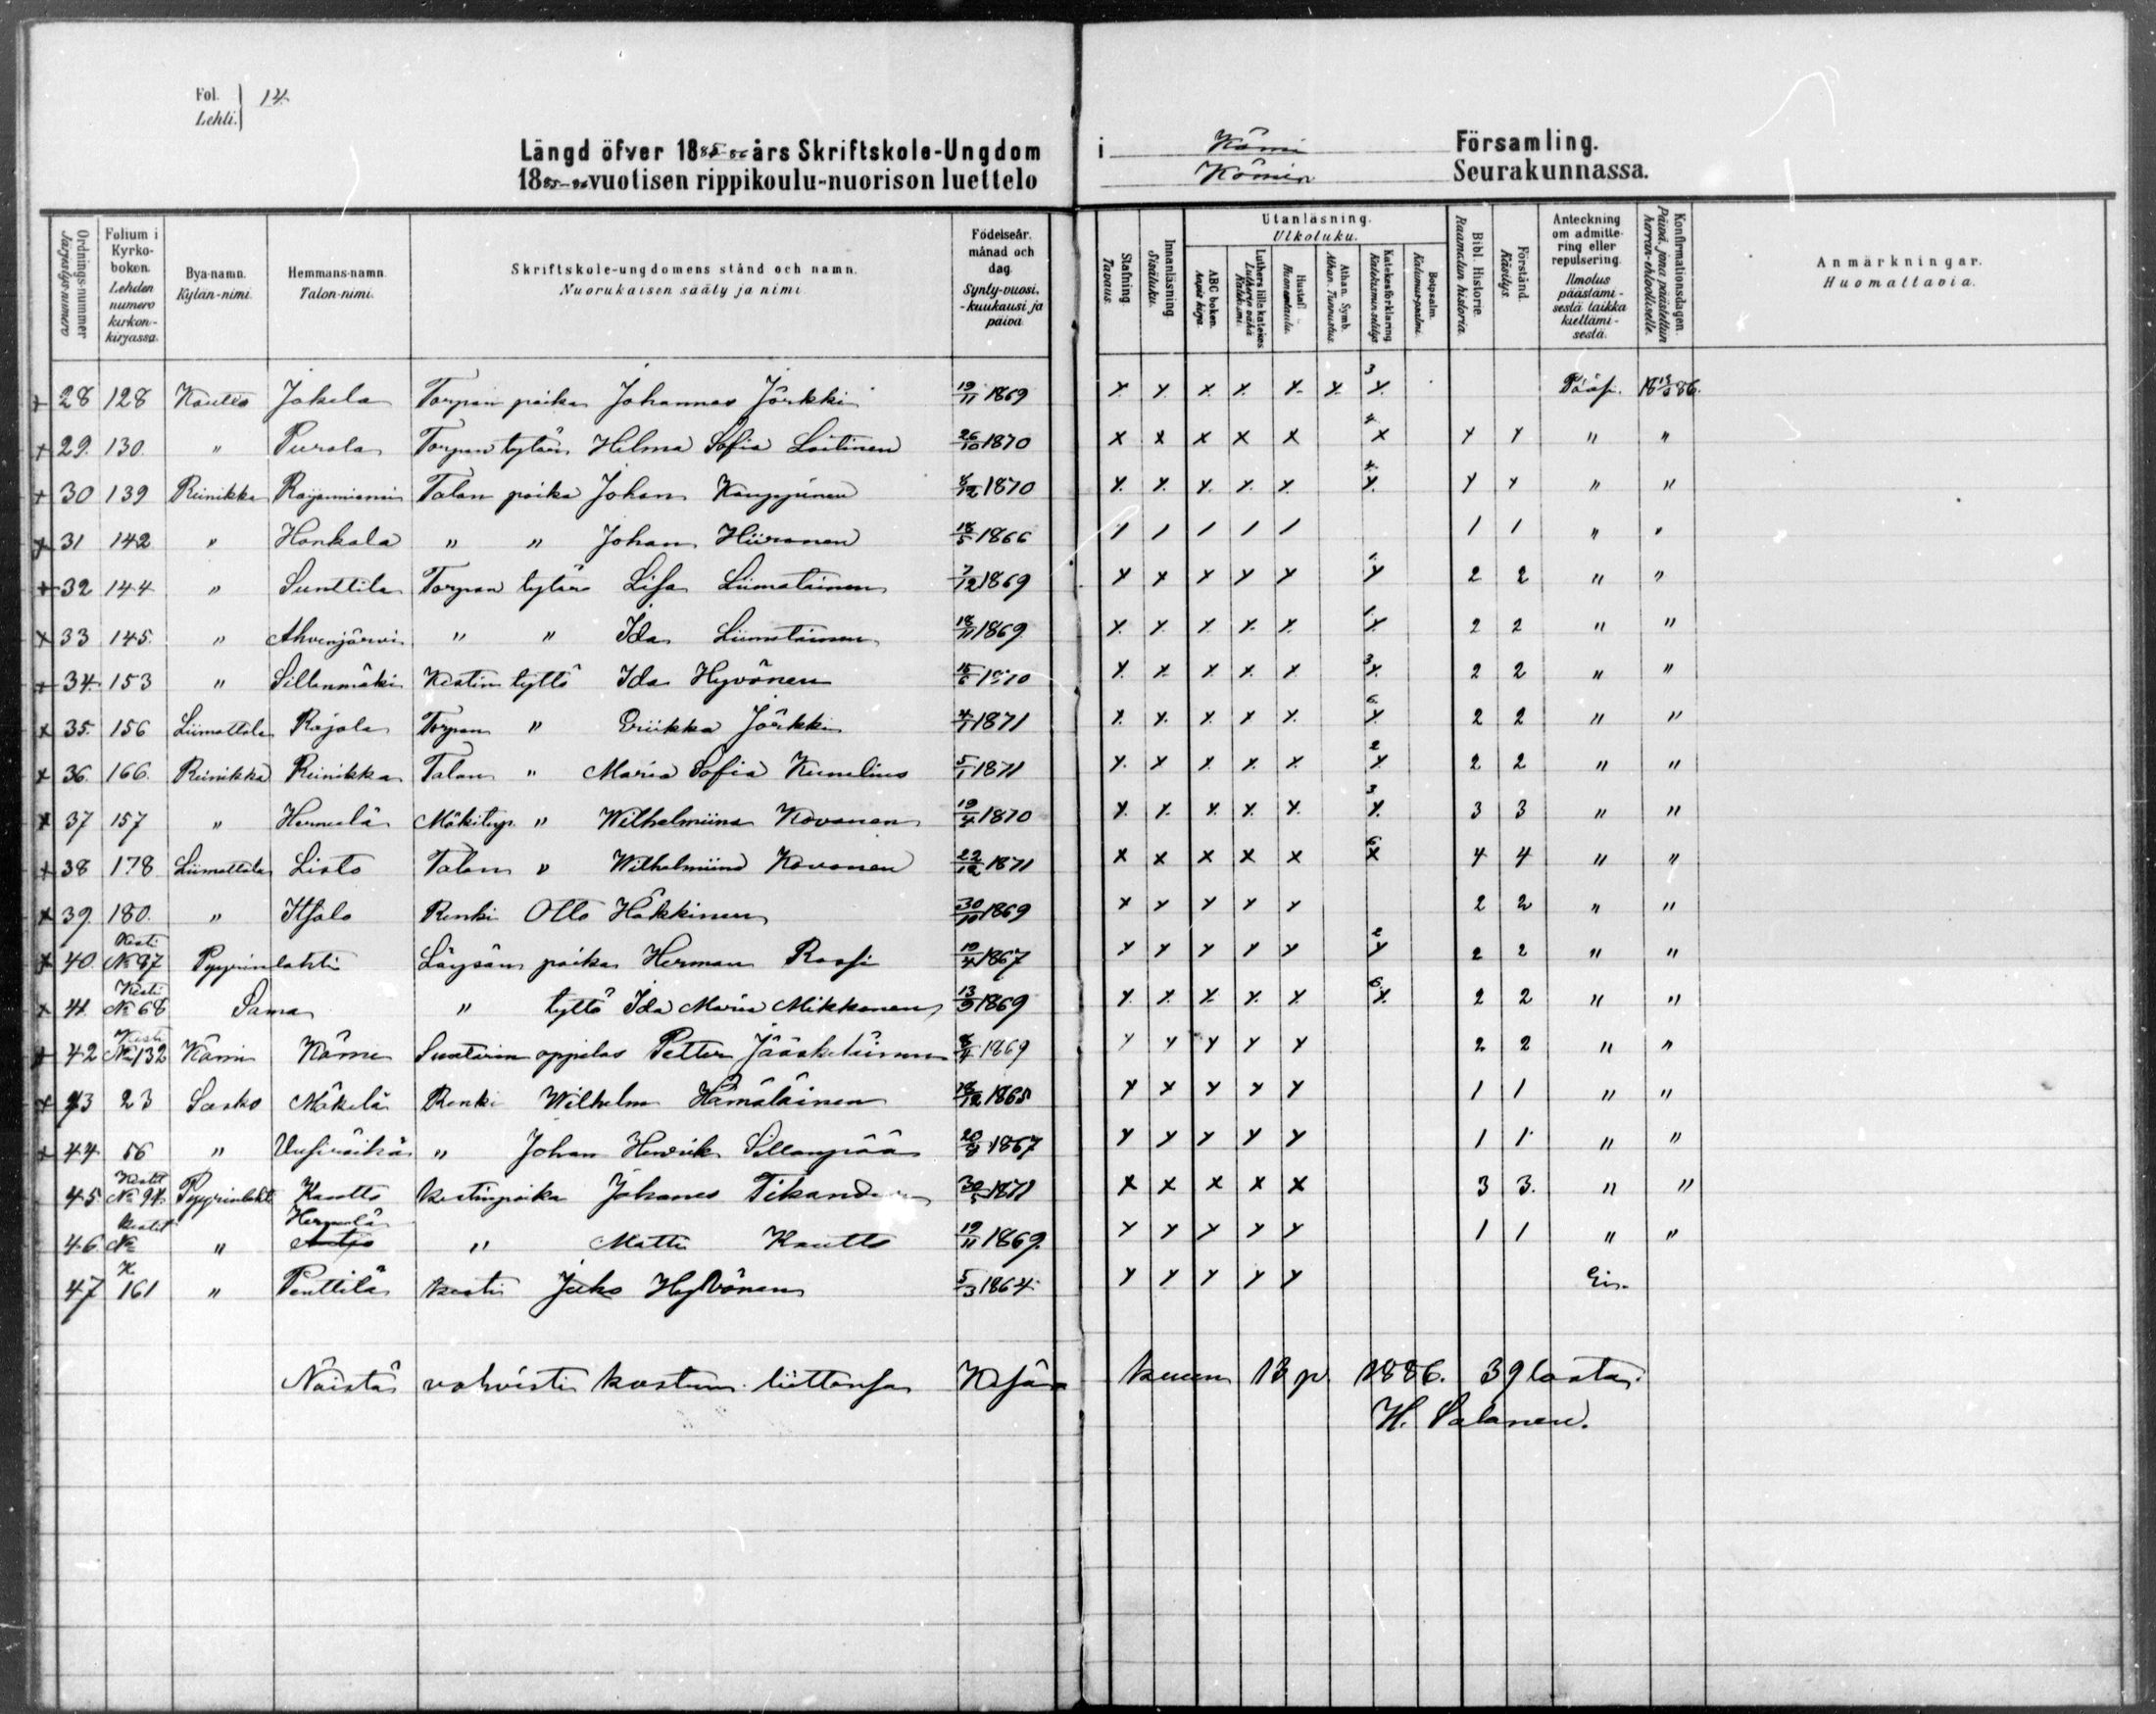 Fol. 14.
Lehti.
Längd öfver 1885-86 års Skriftskole-Ungdom i Kömi Församling.
1885-86 vuotisen rippikoulu-nuorison luettelo Kömin Seurakunnassa.
Ordnings-nummer
Järjestys-numero
Folium i Kyrko-boken.
Lehden numero kirkon-kirjassa.
Bya-namn.
Kylän-nimi.
Hemmans-namn.
Talon-nimi.
Skriftskole-ungdomens stånd och namn.
Nuorukaisen sääty ja nimi
Födelseår, månad och dag.
Synty-vuosi, -kuukausi ja päivä
Stafning.
Tavaus.
Innanläsning
Sisäluku.
Utanläsning.
Ulkoluku.
ABC boken.
Aapis kirja.
Luthers lilla katekes
Lutherin vähä Katekismi.
Hustafl.
Huoneentaulu.
Athan. Symb.
Athan. Tunnustus.
Katekesförklaring
Katekismus-selitys
Botpsalm.
Katumus-psalmi.
Bibl. Historie.
Raamatun historia.
Förstånd.
Käsitys.
Anteckning om admittering eller repulsering.
Ilmotus päästämisestä taikka kieltämisestä.
Konfirmationsdagen.
Päivä, jona päästettiin herran-ehtoolliselle.
Anmärkningar.
Huomattavia.
+ 28 128 Kautto Jokela Torpan poika Johannes Jörkki 19/11 1869 x x x x x x 3 x Pääsi. 18 13/6 86.
+ 29. 130. " Purola Torpan tytär Helma Sofia Laitinen 26/10 1870 x x x x x 4 x x x " "
+ 30 139 Reinikka Rajaniemi Talon poika Johan Kauppinen 8/12 1870 x x x x x 4 x x x " "
x 31 142 " Honkala " " Johan Hiironen 18/5 1866 / / / / / 1 1 " "
+ 32 144 " Sunttila Torpan tytär Lisa Liimatainen 7/12 1869 x x x x x x 2 2 " "
x 33 145. " Ahvenjärvi " " Ida Liimatainen 18/11 1869 x x x x x 1 x 2 2 " "
+ 34. 153 " Sillanmäki Kestin tyttö Ida Hyvönen 15/6 1870 x x x x x 3 x 2 2 " "
x 35. 156 Liimattala Rajala Torpan " Eriikka Jörkki 4/1 1871 x x x x x 6. x 2 2 " "
x 36. 166. Reinikka Reinikka Talon " Maria Sofia Kunelius 5/1 1871 x x x x x 2 x 2 2 " "
x 37 157 " Hernelä Mökitup. " Wilhelmiina Kovanen 19/4 1870 x x x x x 3 x 3 3 " "
+ 38 178 Liimattala Listo Talon " Wilhelmiina Kovanen 22/12 1871 x x x x x 6 x 4 4 " "
x 39. 180. " Itsalo Renki Otto Häkkinen 30/10 1869 x x x x x 2 2 " "
x 40. Kesti № 97 Pyyrinlahti Löysän poika Herman Rossi 19/4 1867 x x x x x 2 x 2 2 " "
x 41. Kesti № 68 Sama " tyttö Ida Maria Mikkonen 13/9 1869 x x x x x 6 x 2 2 " "
+ 42 Kesti № 132 Kömi Kömi Suutarin oppilas Petter Jääskeläinen 8/4 1869 x x x x x 2 2 " "
x 43 23 Sarko Mäkelä Renki Wilhelm Hämäläinen 18/12 1865 x x x x x 1 1 " "
+ 44 56 " Uusiräihä " Johan Henrik Sillanpää 20/4 1867 x x x x x 1 1 " "
45 Kestit № 94. Pyyrinlahti Kautto kestinpoika Johannes Tikander 30/5 1871 x x x x x 3 3. " "
46. Kestit № " Hernelä " Matti Kautto 19/11 1869. x x x x x 1 1 " "
47 K. 161 " Penttilä kesti Juho Hyvönen 5/3 1864 x x x x x Ei.
Näistä vahvisti kasteen liittonsa Kesä kuun 13 p 1886. 39 lasta.
H. Salanen.